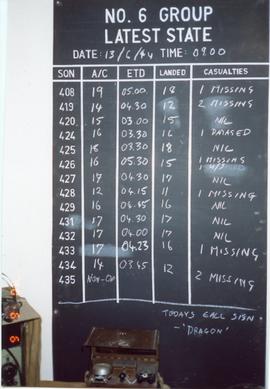 NO. 6 GROUP
LATEST STATE
DATE: 13/6/44 TIME: 0900
SQN A/C ETD LANDED CASUALTIES
408 19 05.00 18 1 MISSING
419 14 04.30 12 2 MISSING
420 15 03.00 15 NIL
424 16 03.30 16 1 DAMAGED
425 18 03.30 18 NIL
426 16 05.30 15 1 MISSING
427 17 04.30 17 NIL
428 12 04.15 11 1 MISSING
429 16 04.45 16 NIL
431 17 04.30 17 NIL
432 17 04.00 17 NIL
433 17 04.23 16 1 MISSING
434 14 03.45 12 2 MISSING
435 NON-OP
TODAYS CALL SIGN
-'DRAGON'